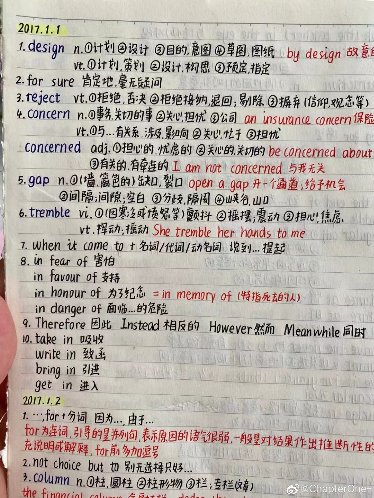 2017.1.1
1. design n.①计划 ②设计 ③目的,意图 ④草图,图纸 by design 故意的
vt.①计划,策划 ②设计,构思 ③预定,指定
2. for sure 肯定地,毫无疑问
3. reject vt.①拒绝,否决 ②拒绝接纳,退回;剔除 ③摒弃(信仰,观念等)
4. concern n.①事务,关切的事 ②关心,担忧 ③公司 an insurance concern 保险
vt.①与…有关系 涉及,影响 ②关心,忙于 ③担忧
concerned adj.①担心的,忧虑的 ②关心的,关切的 be concerned about
③有关的,有牵连的 I am not concerned 与我无关
5. gap n.①(墙,篱笆的)缺缺,裂口 open a gap 开一个通道,给予机会
②间隔;间隙;空白 ③分歧,隔阂 ④峡谷,山口
6. tremble vi.①(因寒冷或愤怒等)颤抖 ②摇摆,震动 ③担心,焦虑
vt.挥动,振动 She tremble her hands to me
7. when it come to + 名词/代词/动名词 说到…提起
8. in fear of 害怕
in favour of 支持
in honour of 为了纪念 = in memory of (特指死去的人)
in danger of 面临…的危险
9. Therefore 因此 Instead 相反的 However 然而 Meanwhile 同时
10. take in 吸收
write in 致函
bring in 引进
get in 进入
2017.1.2
1. …,for+分词 因为…,由于…
for为连词,引导的是并列句,表示原因的语气很弱,一般是对结果作出推断性的
充说明或解释,for前多加逗号
2. not choice but to 别无选择只好…
3. column n.①柱,圆柱 ②柱形物 ③栏;专栏(文章)
the financial column
@ChapterOne-